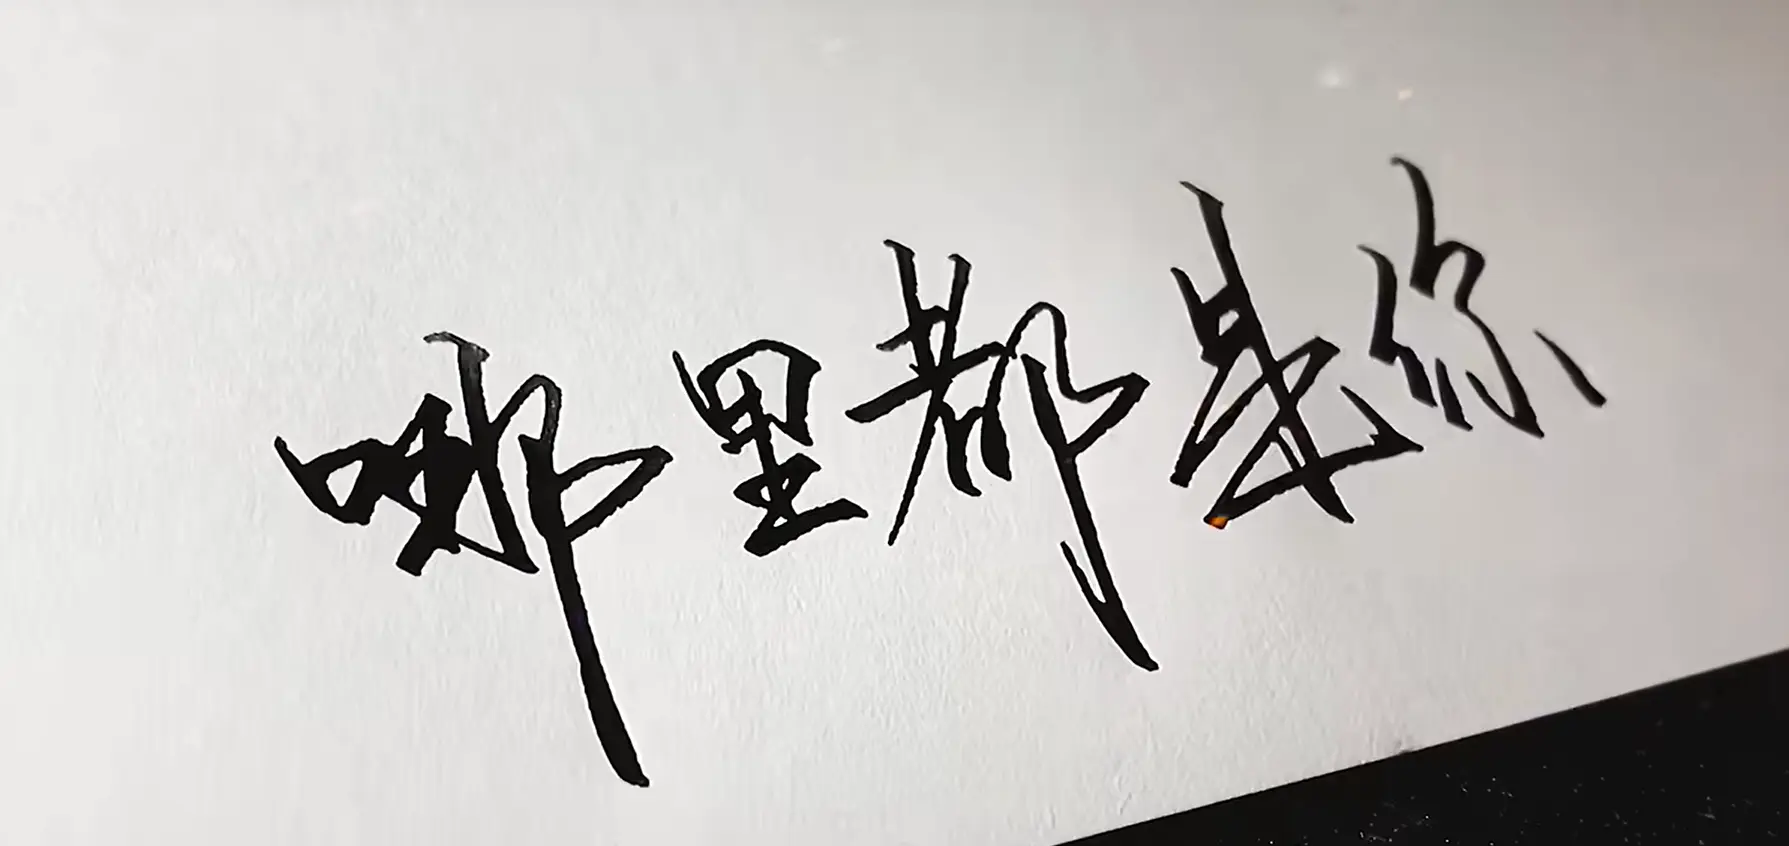 哪里都是你